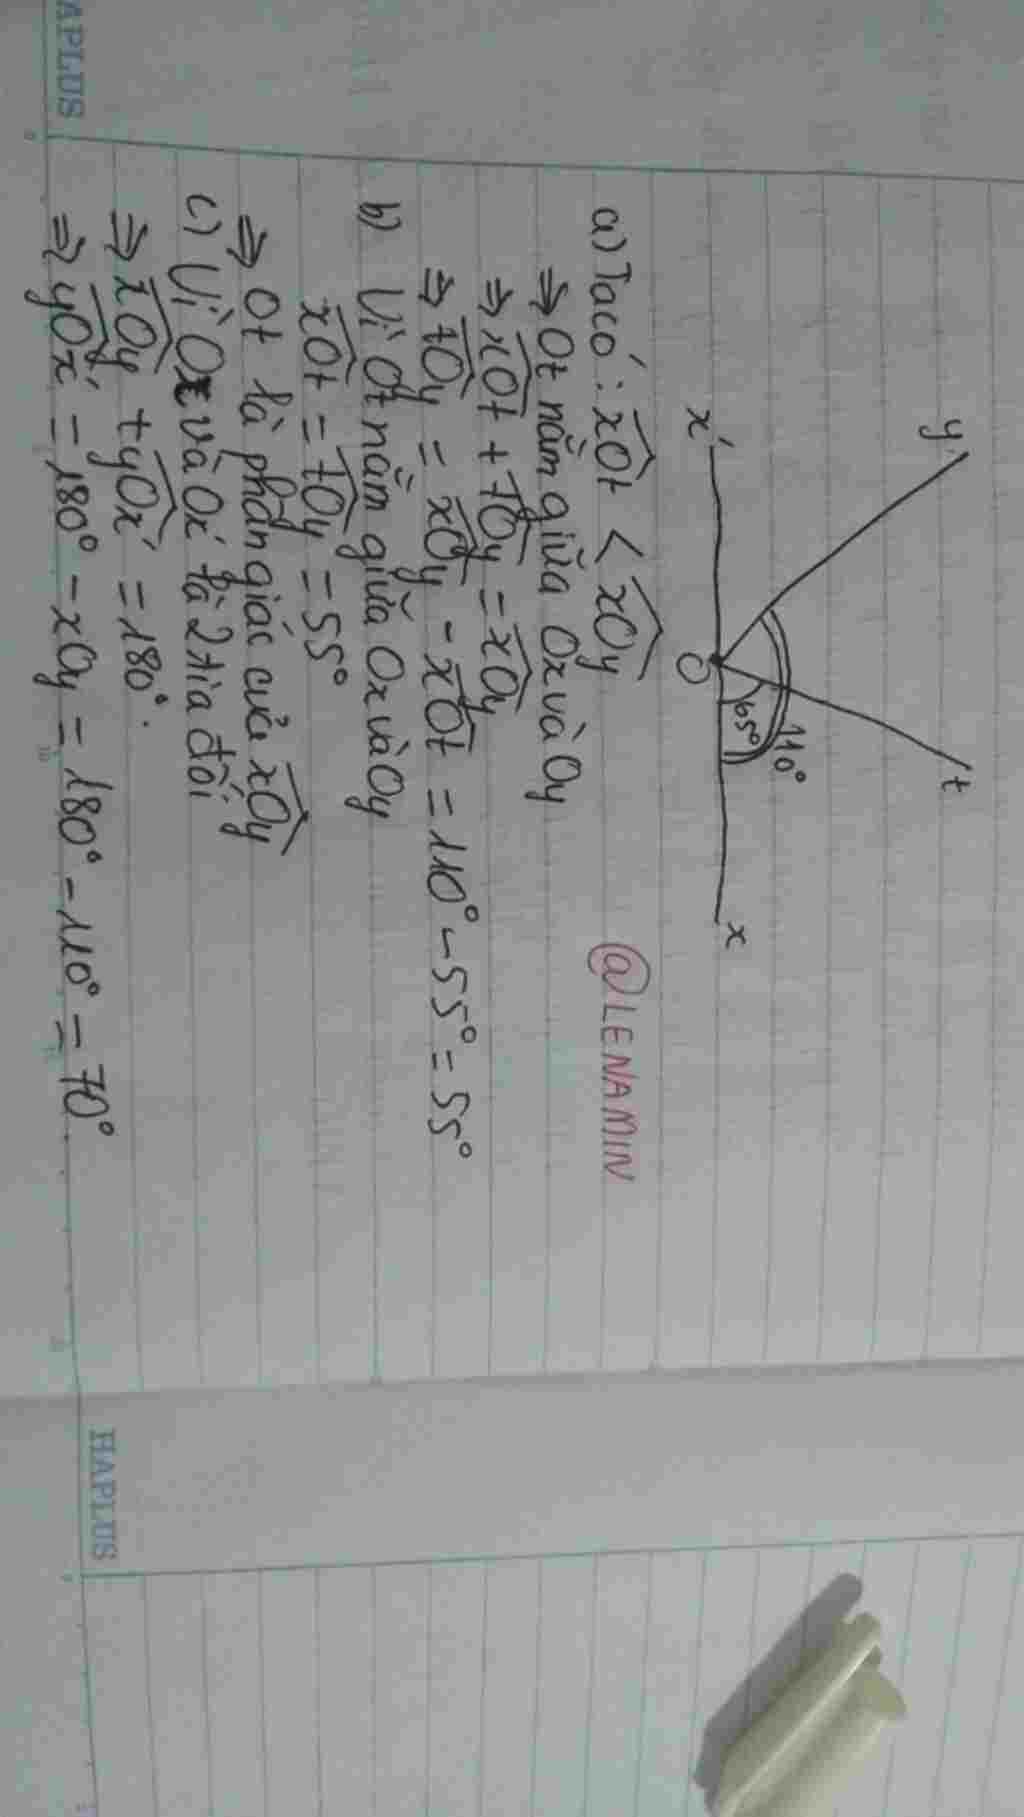 HAPLUS
y
t
110°
55°
x'
O
x
@LENAMIN
a) Ta có: xOt < xOy
⇒ Ot nằm giữa Ox và Oy
⇒ xOt + tOy = xOy
⇒ tOy = xOy - xOt = 110° - 55° = 55°
b) Vì Ot nằm giữa Ox và Oy
xOt = tOy = 55°
⇒ Ot là phân giác của xOy
c) Vì Ox và Ox' là 2 tia đối
⇒ xOy + yOx' = 180°.
⇒ yOx' = 180° - xOy = 180° - 110° = 70°
APLUS